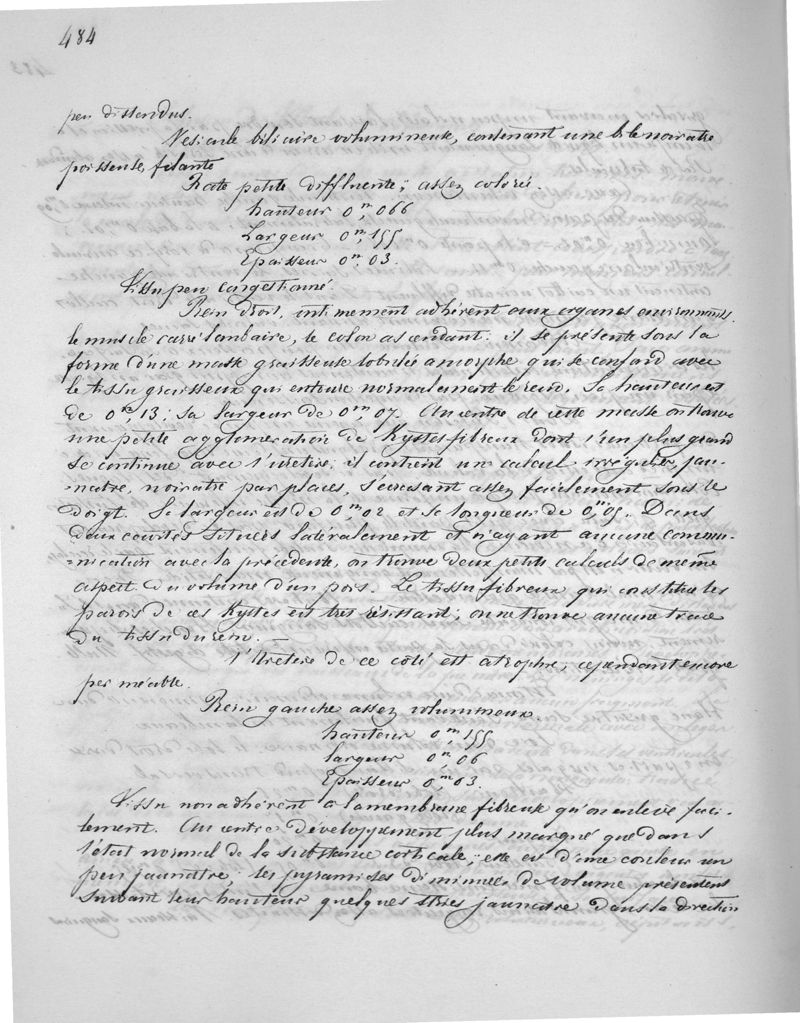 484
peu distendus.
Vésicule biliaire volumineuse, contenant une bile noiratre
poisseuse, filante
Rate petite diffluente; assez colorée.
hauteur 0m,066
Largeur 0m,155
Epaisseur 0m,03.
Tissu peu congestionné.
Rein droit, intimement adhérent aux organes environnants.
le muscle carré lombaire, le colon ascendant: il se présente sous la
forme d'une masse graisseuse lobulée amorphe qui se confond avec
le tissu graisseux qui entoure normalement le rein. Sa hauteur est
de 0m,13; sa largeur de 0m,07. Au centre de cette masse on trouve
une petite agglomération de Kystes fibreux dont l'un plus grand
se continue avec l'uretère; il contient un calcul irrégulier, jau-
-natre, noiratre par places, s'écrasant assez facilement sous le
doigt. Sa largeur est de 0m,02 et sa longueur de 0m,05. Dans
deux courtes situées latéralement et n'ayant aucune commu-
-nication avec la précédente, on trouve deux petits calculs de même
aspect du volume d'un pois. Le tissu fibreux qui constitue les
parois de ces Kystes est très résistant; on ne trouve aucune trace
du tissu du rein. —
l'Uretère de ce côté est atrophié, cependant encore
perméable.
Rein gauche assez volumineux.
hauteur 0m,155
largeur 0m,06
Epaisseur 0m,03.
Tissu non adhérent à la membrane fibreuse qu'on enlève faci-
lement. Au centre développement plus marqué que dans
l'état normal de la substance corticale; elle est d'une couleur un
peu jaunâtre; les pyramides diminuées de volume présentent
suivant leur hauteur quelques stries jaunatre dans la direction